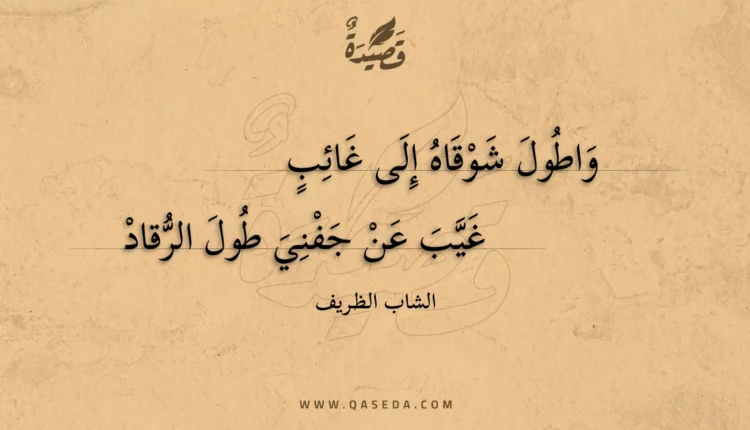 قَصِيدَةٌ
وَاطُولَ شَوْقَاهُ إِلَى غَائِبٍ
غَيَّبَ عَنْ جَفْنِيَ طُولَ الرُّقادْ
الشاب الظريف
WWW.QASEDA.COM